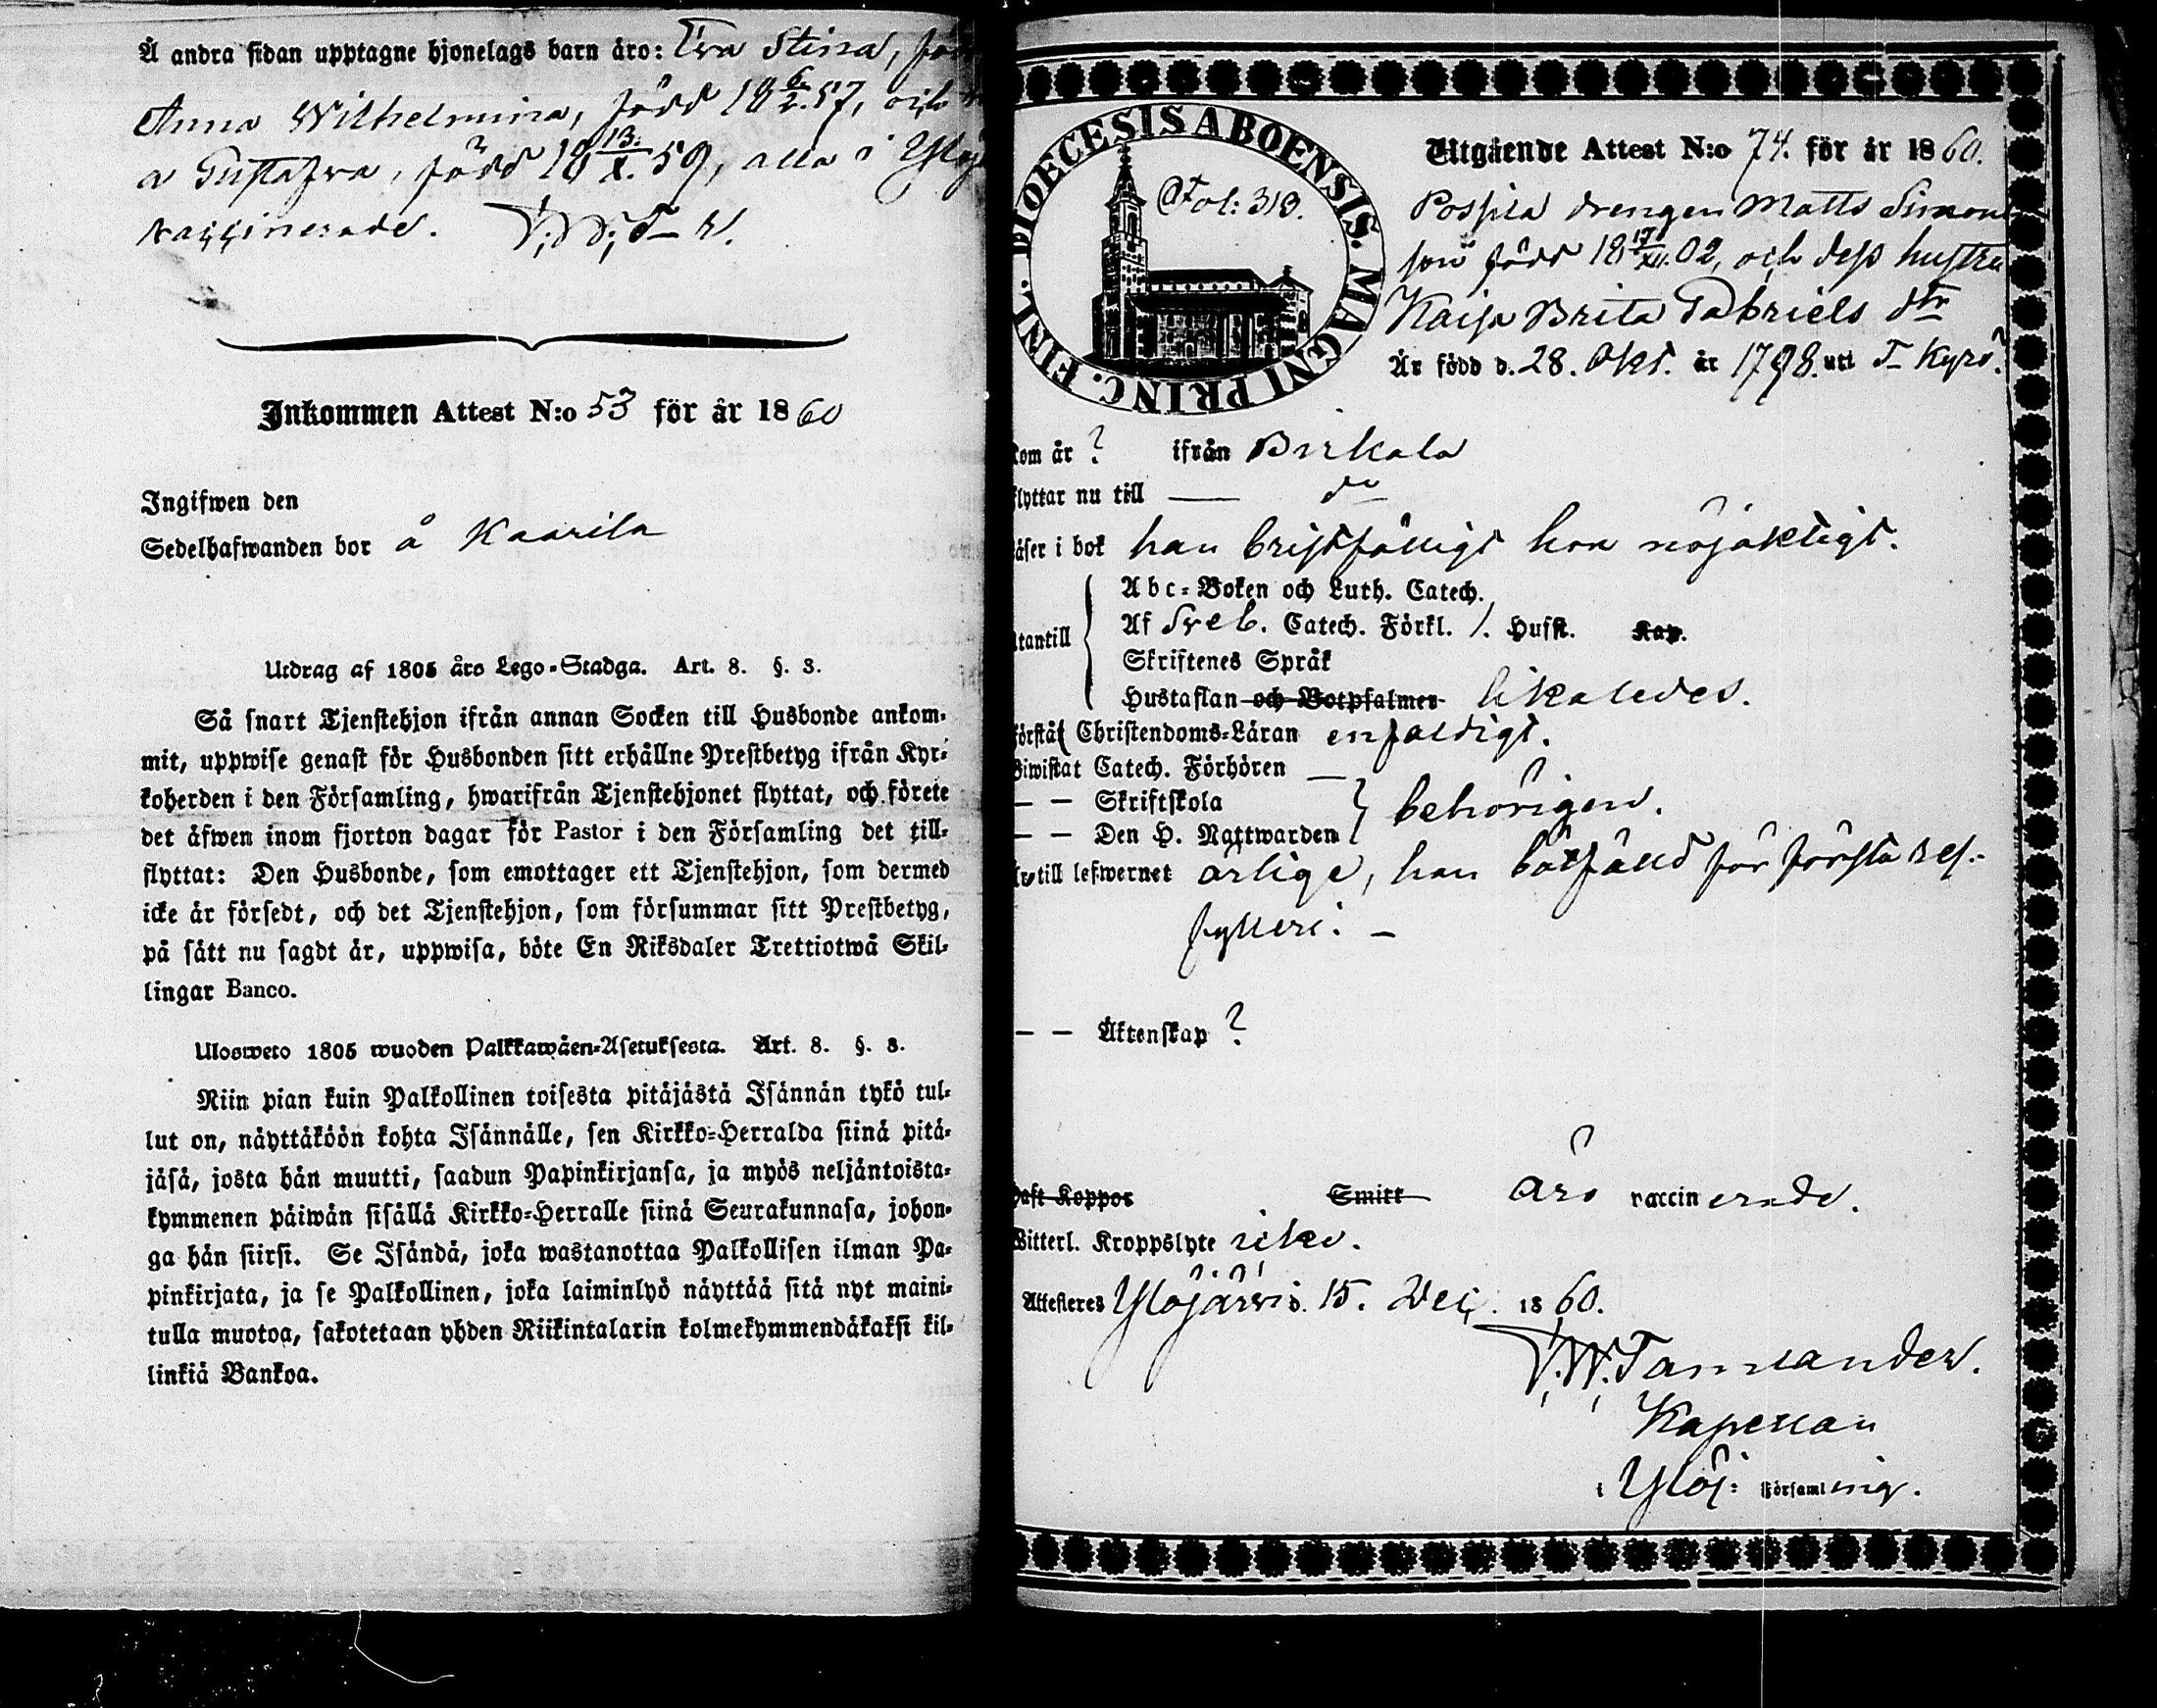 Å andra sidan upptagne hjonelags barn äro: Eva Stina,
Anna Wilhelmina, född 18 6/2. 57, och
a Gustafva, född 18 13./X. 59, alla i
vaccinerade. V. W. T—r.
Inkommen Attest N:o 53 för år 1860
Ingifwen den
Sedelhafwanden bor å Kaarila
Utdrag af 1805 års Lego-Stadga. Art. 8. §. 3.
Så snart Tjenstehjon ifrån annan Socken till Husbonde ankom-
mit, uppwise genast för Husbonden sitt erhållne Prestbetyg ifrån Kyr-
koherden i den Församling, hwarifrån Tjenstehjonet flyttat, och förete
det äfwen inom fjorton dagar för Pastor i den Församling det till-
flyttat: Den Husbonde, som emottager ett Tjenstehjon, som dermed
icke är försedt, och det Tjenstehjon, som försummar sitt Prestbetyg,
på sätt nu sagdt är, uppwisa, böte En Riksdaler Trettiotwå Skil-
lingar Banco.
Ulosweto 1805 wuoden Palkkawäen-Asetuksesta. Art. 8. §. 3.
Niin pian kuin Palkollinen toisesta pitäjästä Isännän tykö tul-
lut on, näyttäköön kohta Isännälle, sen Kirkko-Herralda siinä pitä-
jäsä, josta hän muutti, saadun Papinkirjansa, ja myös neljäntoista-
kymmenen päiwän sisällä Kirkko-Herralle siinä Seurakunnasa, johon-
ga hän siirsi. Se Isändä, joka wastanottaa Palkollisen ilman Pa-
pinkirjata, ja se Palkollinen, joka laiminlyö näyttää sitä nyt maini-
tulla muotoa, sakotetaan yhden Riikintalarin kolmekymmendäkaksi kil-
linkiä Bankoa.
DIOECESIS ABOENSIS. MAGNI PRINC. FINL.
Fol: 318.
Utgående Attest N:o 74. för år 1860.
drengen Matts Simons
son född 18 17/XII. 02, och dess hustru
Kaisa Brita Gabriels dtr
Är född d. 28. Okt. år 1798. uti T—Kyrö.
kom år ? ifrån Birkala
flyttar nu till — do
läser i bok han bristfälligt hon nöjaktigt.
Abc-Boken och Luth. Catech.
utantill Af Sveb. Catech. Förkl. /. Hufst. Kap.
Skriftenes Språk
Hustaflan och Botpsalmer likaledes.
förstår Christendoms-Läran enfaldigt.
Biwistat Catech. Förhören —
— — Skriftskola
— — Den H. Nattwarden behörigen.
Är till lefwernet ärlige, han botfälld för första res.
fylleri. —
— — Äktenskap ?
haft Koppor Smitt äro vaccinerade.
Witterl. Kroppslyte icke.
Attesteres Ylöjärvi d. 15. Dec. 1860.
V. W. Tamlander.
Kapellan
i Ylöj: Församling.